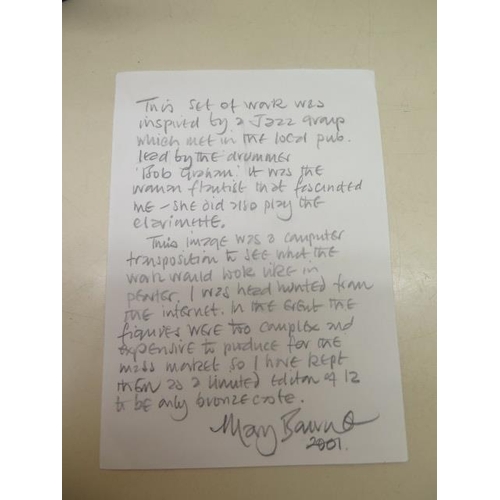 This set of work was
inspired by a Jazz group
which met in the local pub.
lead by the drummer
'Bob Graham'. it was the
woman flautist that fascinated
me - she did also play the
clarinette.
This image was a computer
transposition to see what the
work would look like in
pewter. I was head hunted from
the internet. In the event the
figures were too complex and
expensive to produce for the
mass market so I have kept
them as a limited edition of 12
to be only bronze caste.
Mary
2001.